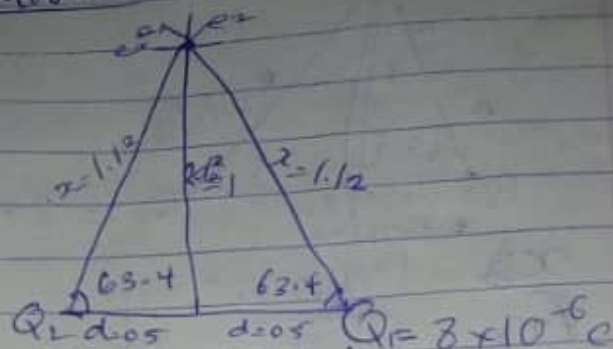 e1 e2
x=1.12 x=1.12
63.4 63.4
Q2 d=05 d=05 Q1= 8 x10^-6 C